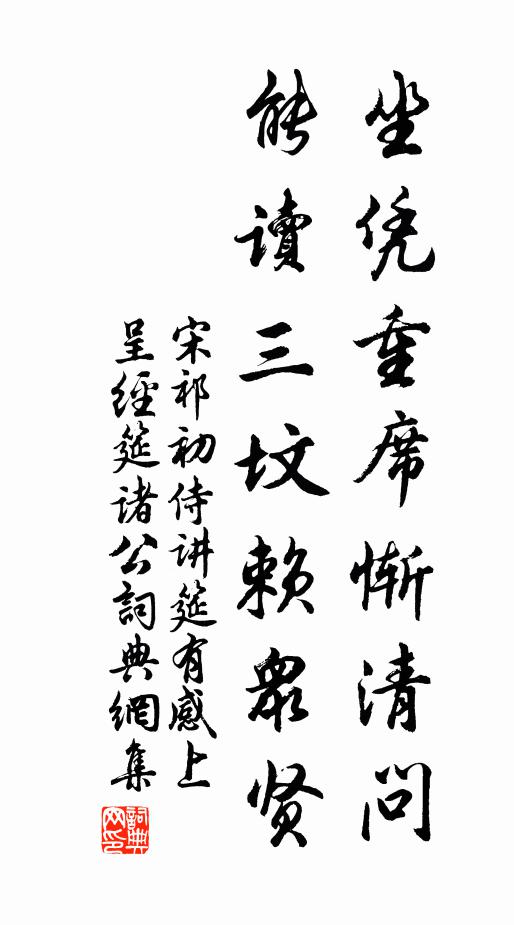 坐凭重席惭清问
能讀三坟赖眾贤
宋祁初侍讲筵有感上
呈經筵诸公詞典網集
詞典网印